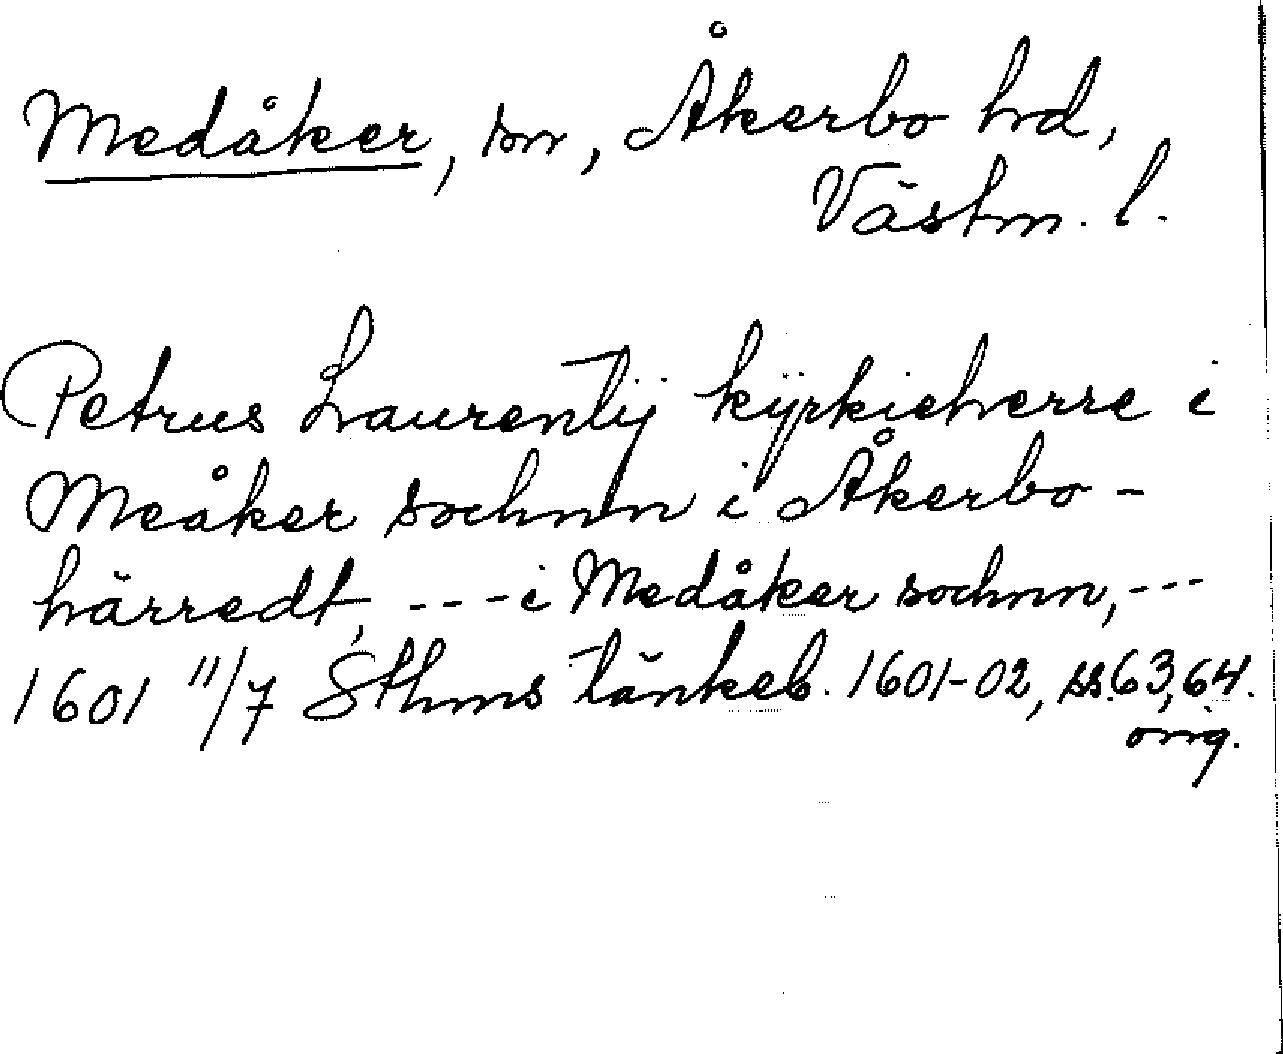 Medåker, sn, Åkerbo hd,
Västm. l.
Petrus Laurentij kÿrkieherre i
Meåker sochnn i Åkerbo-
härredt, --- i Medåker sochnn, ---
1601 11/7 Sthms tänkeb. 1601-02, ss. 63, 64.
orig.